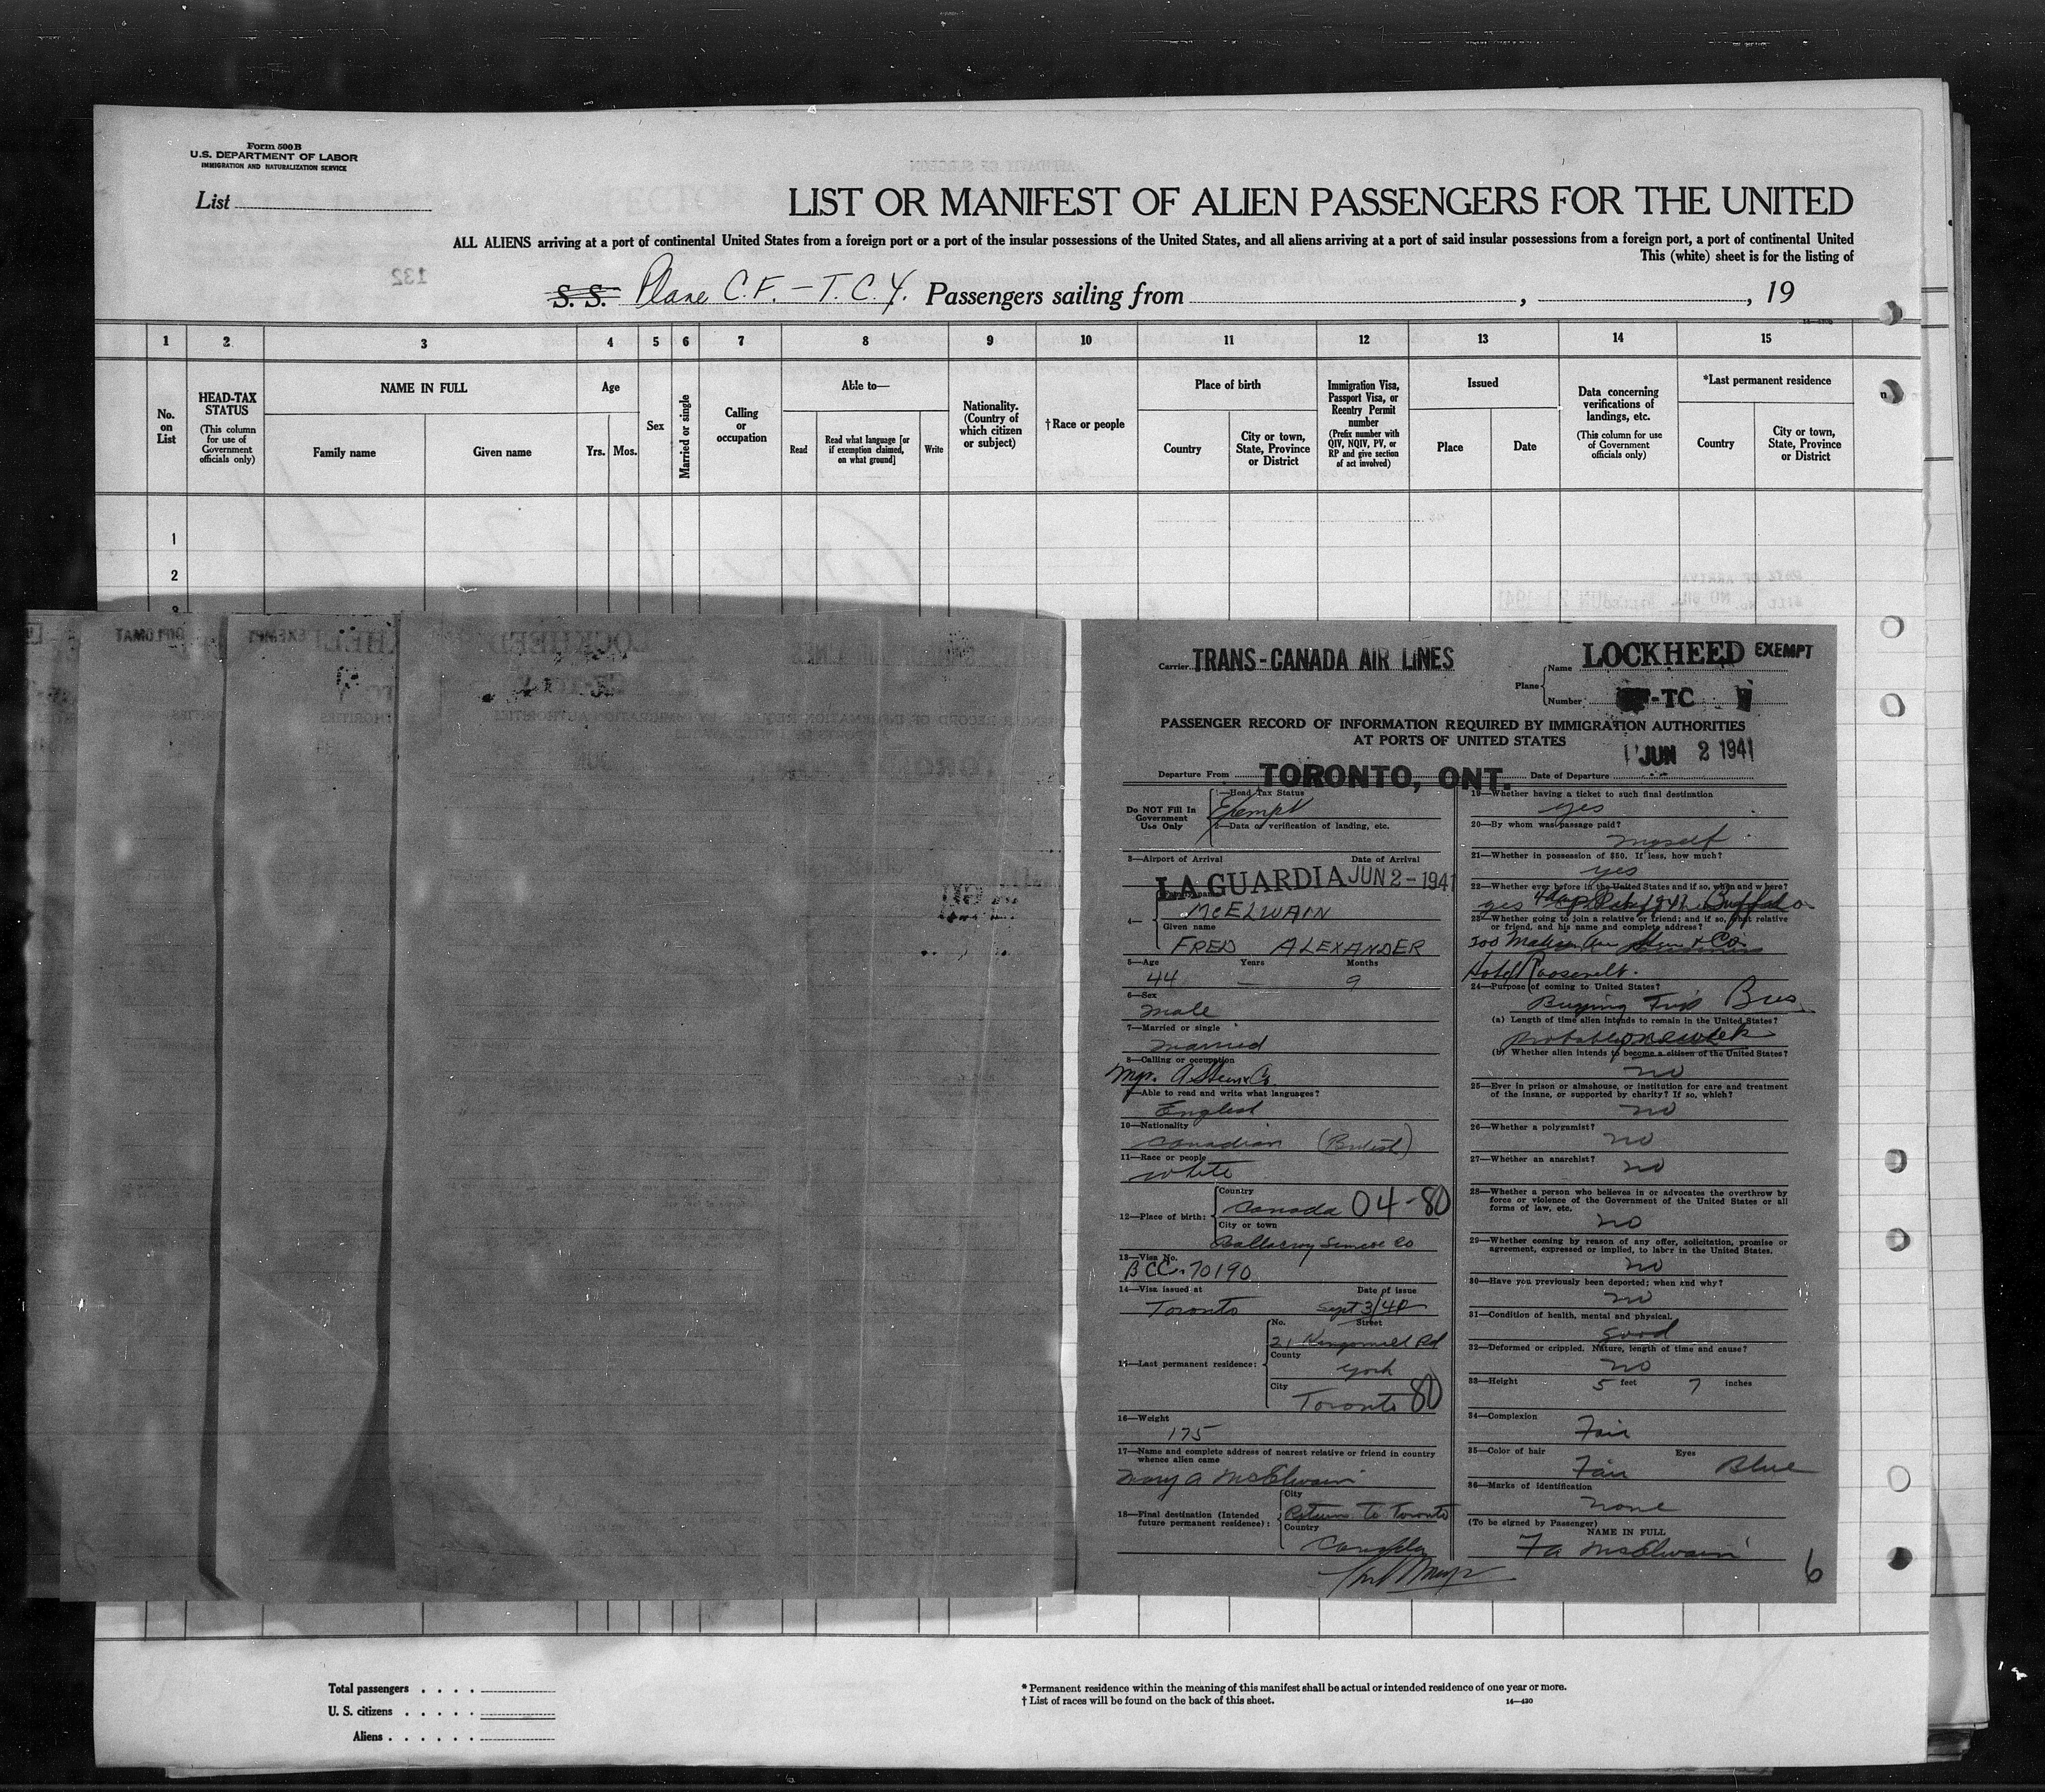 Form 500 B
U.S. DEPARTMENT OF LABOR
IMMIGRATION AND NATURALIZATION SERVICE
List
LIST OR MANIFEST OF ALIEN PASSENGERS FOR THE UNITED
ALL ALIENS arriving at a port of continental United States from a foreign port or a port of the insular possessions of the United States, and all aliens arriving at a port of said insular possessions from a foreign port, a port of continental United
This (white) sheet is for the listing of
S. S. Plane C.F. - T.C.Y. Passengers sailing from , , 19
1 2 3 4 5 6 7 8 9 10 11 12 13 14 15
No. on List
HEAD-TAX STATUS
(This column for use of Government officials only)
NAME IN FULL
Family name
Given name
Age
Yrs. Mos.
Sex
Married or single
Calling or occupation
Able to—
Read
Read what language [or if exemption claimed, on what ground]
Write
Nationality. (Country of which citizen or subject)
† Race or people
Place of birth
Country
City or town, State, Province or District
Immigration Visa, Passport Visa, or Reentry Permit number
(Prefix number with QIV, NQIV, PV, or RP and give section of act involved)
Issued
Place
Date
Data concerning verifications of landings, etc.
(This column for use of Government officials only)
*Last permanent residence
Country
City or town, State, Province or District
1
2
Carrier TRANS-CANADA AIR LINES
Plane
Name LOCKHEED EXEMPT
Number -TC
PASSENGER RECORD OF INFORMATION REQUIRED BY IMMIGRATION AUTHORITIES
AT PORTS OF UNITED STATES
JUN 2 1941
Departure From TORONTO, ONT. Date of Departure
Do NOT Fill In Government Use Only
1—Head Tax Status
Exempt
2—Data of verification of landing, etc.
3—Airport of Arrival Date of Arrival
LA GUARDIA JUN 2 - 1941
4—
McELWAIN
Given name
FRED ALEXANDER
5—Age Years Months
44 — 9
6—Sex
Male
7—Married or single
Married
8—Calling or occupation
Mgr. A Stein & Co.
9—Able to read and write what languages?
English
10—Nationality
Canadian (British)
11—Race or people
White
12—Place of birth:
Country
Canada 04-80
City or town
Simcoe Co
13—Visa No.
BCC-70190
14—Visa issued at Date of issue
Toronto Sept 3/40
15—Last permanent residence:
No. Street
21 Kingsmill Rd
County
York
City
Toronto 80
16—Weight
175
17—Name and complete address of nearest relative or friend in country whence alien came
Mary A McElwain
18—Final destination (Intended future permanent residence):
City
Return To Toronto
Country
Canada
19—Whether having a ticket to such final destination
yes
20—By whom was passage paid?
Myself
21—Whether in possession of $50. If less, how much?
yes
22—Whether ever before in the United States and if so, when and where?
yes Buffalo
23—Whether going to join a relative or friend; and if so, what relative or friend, and his name and complete address?
Stein & Co.
Hotel Roosevelt.
24—Purpose of coming to United States?
Buying Trip Bus
(a) Length of time alien intends to remain in the United States?
Probably one week
(b) Whether alien intends to become a citizen of the United States?
no
25—Ever in prison or almshouse, or institution for care and treatment of the insane, or supported by charity? If so, which?
no
26—Whether a polygamist?
no
27—Whether an anarchist?
no
28—Whether a person who believes in or advocates the overthrow by force or violence of the Government of the United States or all forms of law, etc.
no
29—Whether coming by reason of any offer, solicitation, promise or agreement, expressed or implied, to labor in the United States.
no
30—Have you previously been deported; when and why?
no
31—Condition of health, mental and physical.
good
32—Deformed or crippled. Nature, length of time and cause?
no
33—Height 5 feet 7 inches
34—Complexion
Fair
35—Color of hair Eyes
Fair Blue
36—Marks of identification
none
(To be signed by Passenger)
NAME IN FULL
F A McElwain
6
Total passengers
U. S. citizens
Aliens
* Permanent residence within the meaning of this manifest shall be actual or intended residence of one year or more.
† List of races will be found on the back of this sheet.
14—430